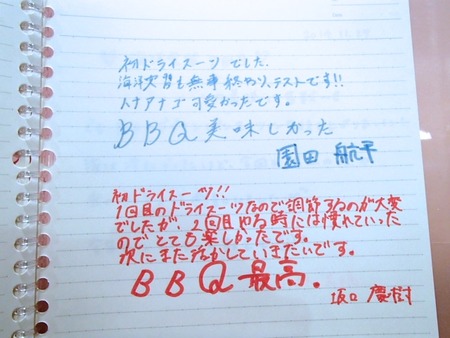 初ドライスーツ でした.
海洋実習も無事終わり、テストです!!
トナアナゴ可愛かったです。
BBQ美味しかった
園田 航平
初ドライスーツ!!
1回目のドライスーツなので調節するのが大変
でしたが、2回目やる時には慣れていった
のでとても楽しかったです。
次にまた活かしていきたいです。
BBQ最高。
坂口 慶樹